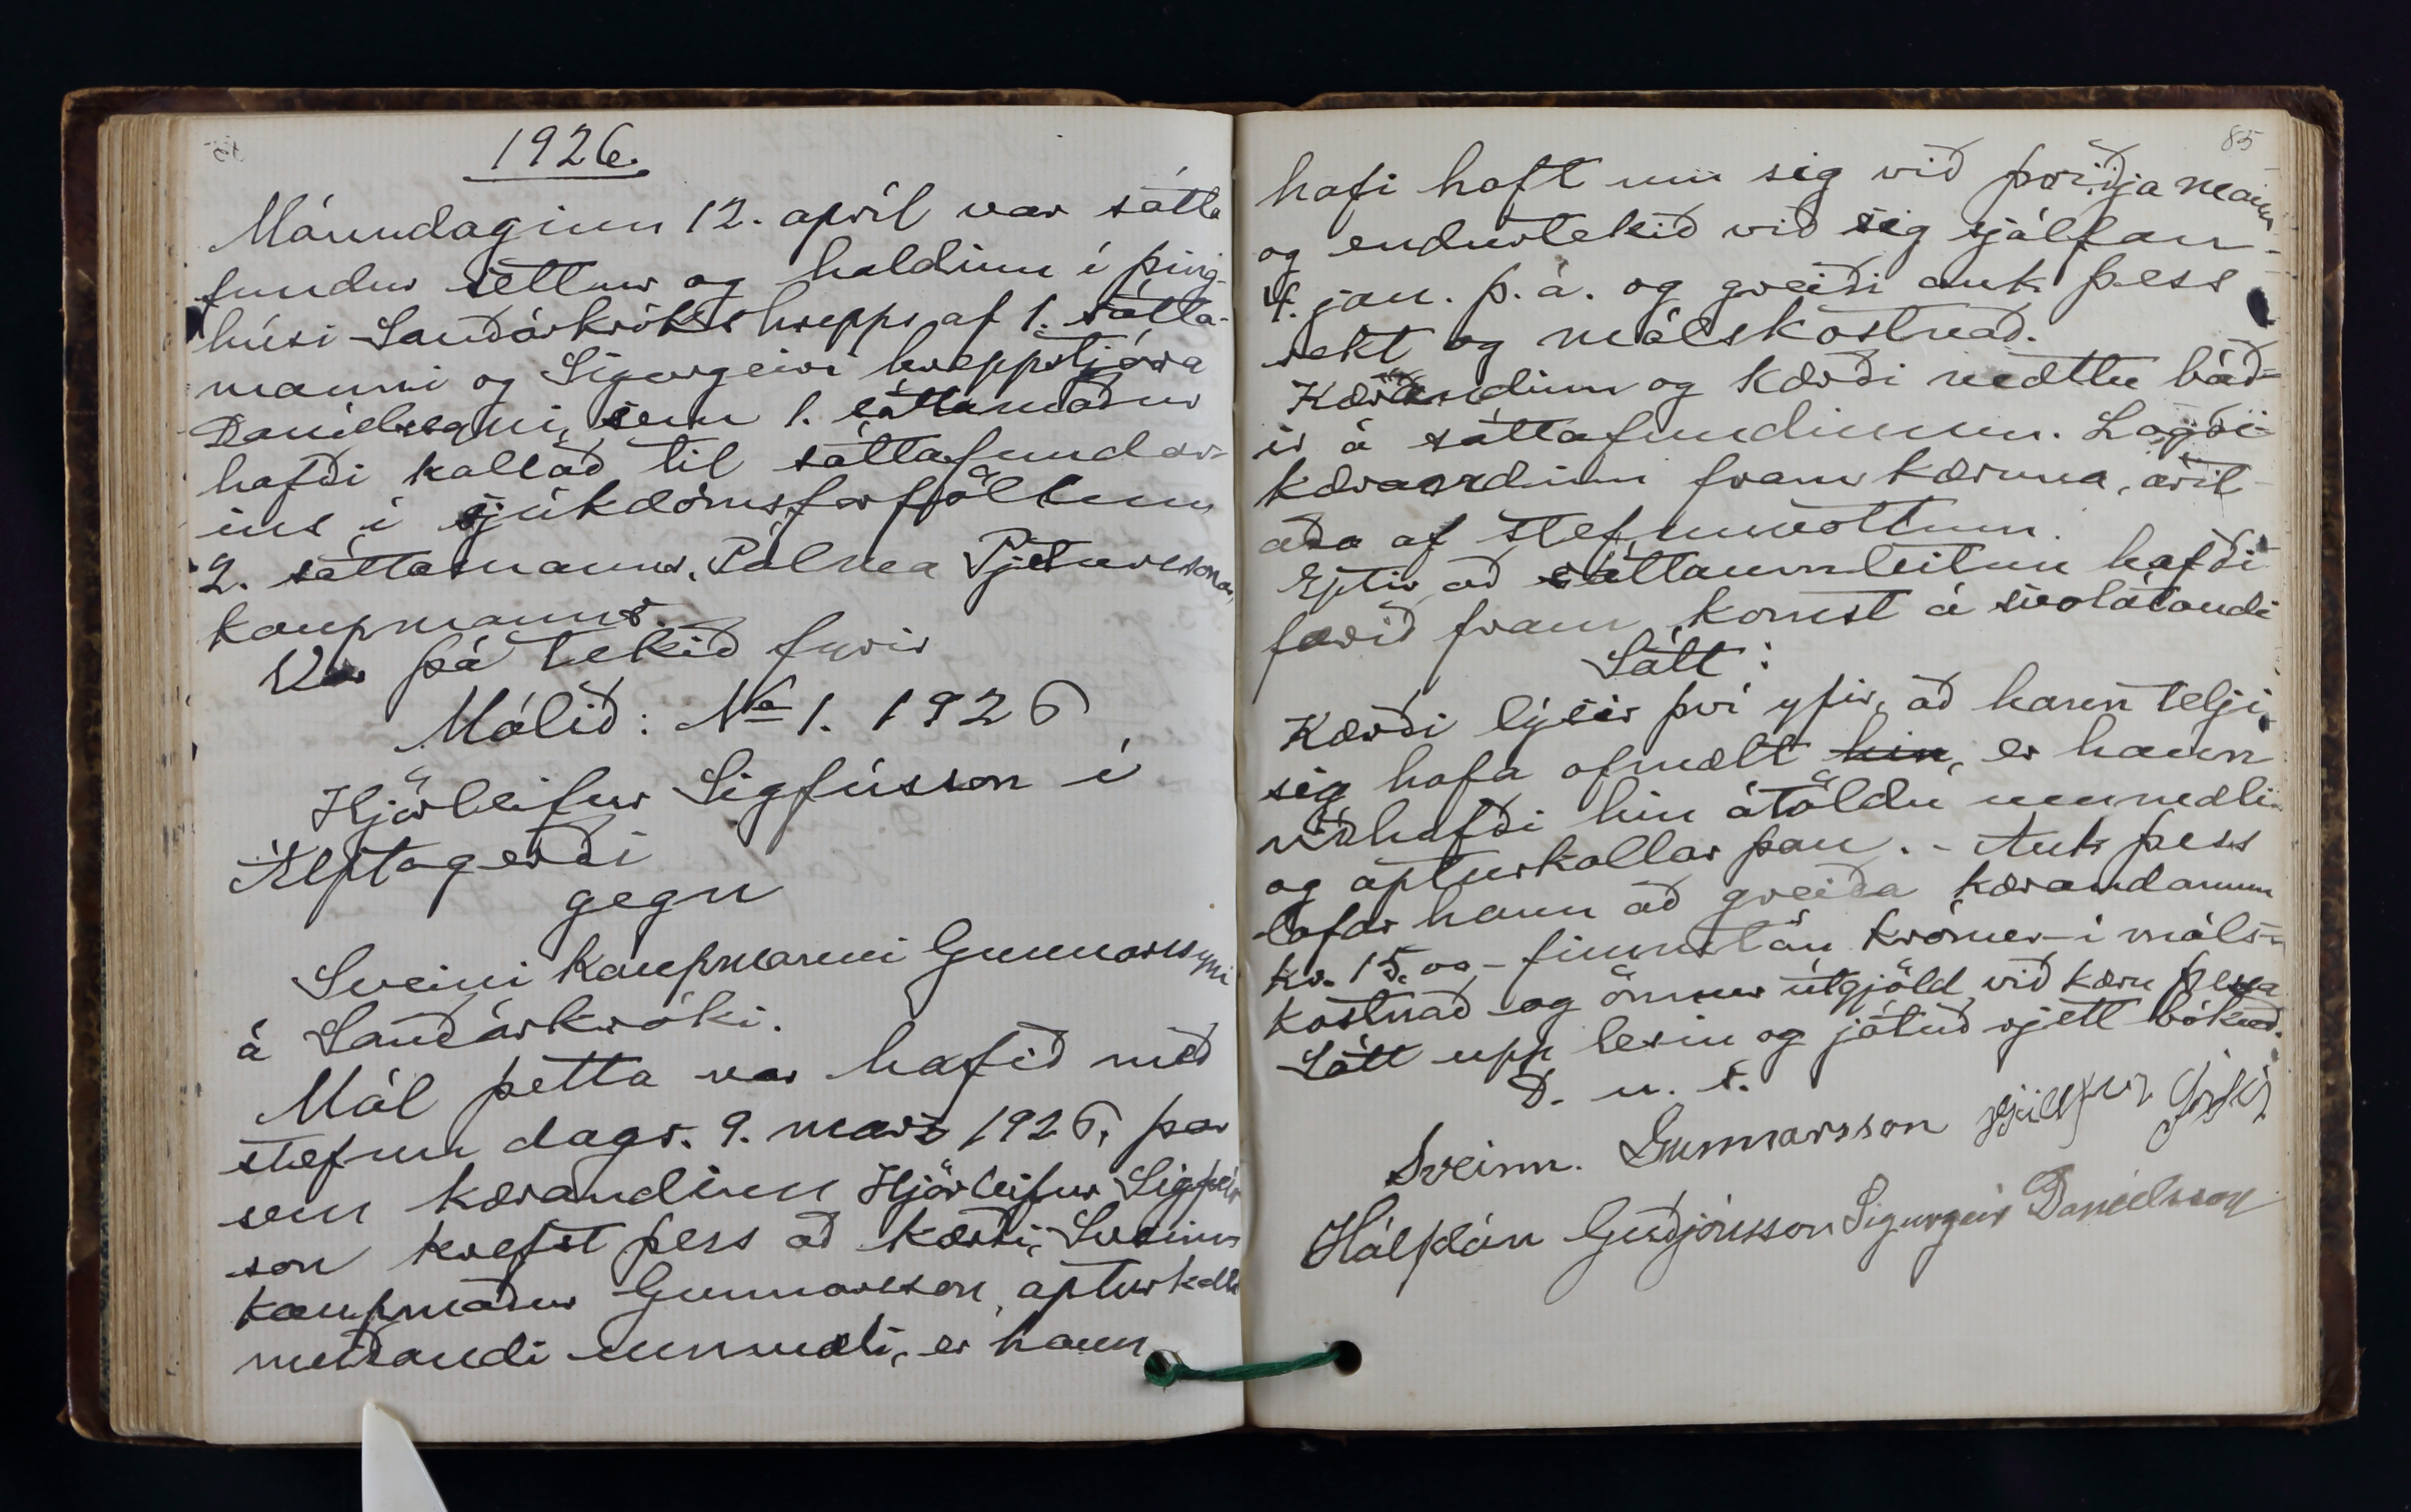 1926.
Mánudaginn 12. apríl var sátta
fundur settur og haldinn í þing-
húsi Sauðárkrókshrepps af 1. sátta-
manni og Sigurgeiri hreppstjóra
Daníelssyni, sem 1. sáttamaður
hafði kallað til sáttafundar-
ins í sjúkdómsforföllum
2. sáttamanns, Pálma Pjeturssonar,
kaupmanns.
Var þá tekið fyrir
Málið: No 1. 1926
Hjörleifur Sigfússon í
Álptagerði
gegn
Sveini kaupmanni Gunnarssyni
á Sauðárkróki.
Mál þetta var hafið með
stefnu dags. 9. mars 1926, þar
sem kærandinn Hjörleifur Sigfús
son krefst þess að kærði, Sveinn
kaupmaður Gunnarsson, apturkalli
meiðandi ummæli, er hann
85
hafi haft um sig við þriðja mann
og endurtekið við sig sjálfan
4. jan. þ. á. og greiði auk þess
sekt og málskostnað.
Kærandinn og kærði mættu báð-
ir á sáttafundinum. Lagði
kærandinn fram kæruna, árit-
aða af stefnuvottum.
Eptir að sáttaumleitun hafði
farið fram, komst á svolátandi
Sátt:
Kærði lýsir því yfir, að hann telji
sig hafa ofmælt hin, er hann
viðhafði hin átöldu ummæli
og apturkallar þau. - Auk þess
lofar hann að greiða kærandanum
kr. 15.00 - fimmtán krónur - í máls-
kostnað og önnur útgjöld við kæru þessa
Sátt upp lesin og játuð rjett bókuð.
D. u. s.
Sveinn. Gunnarsson
Hálfdán Guðjónsson Sigurgeir Daníelsson